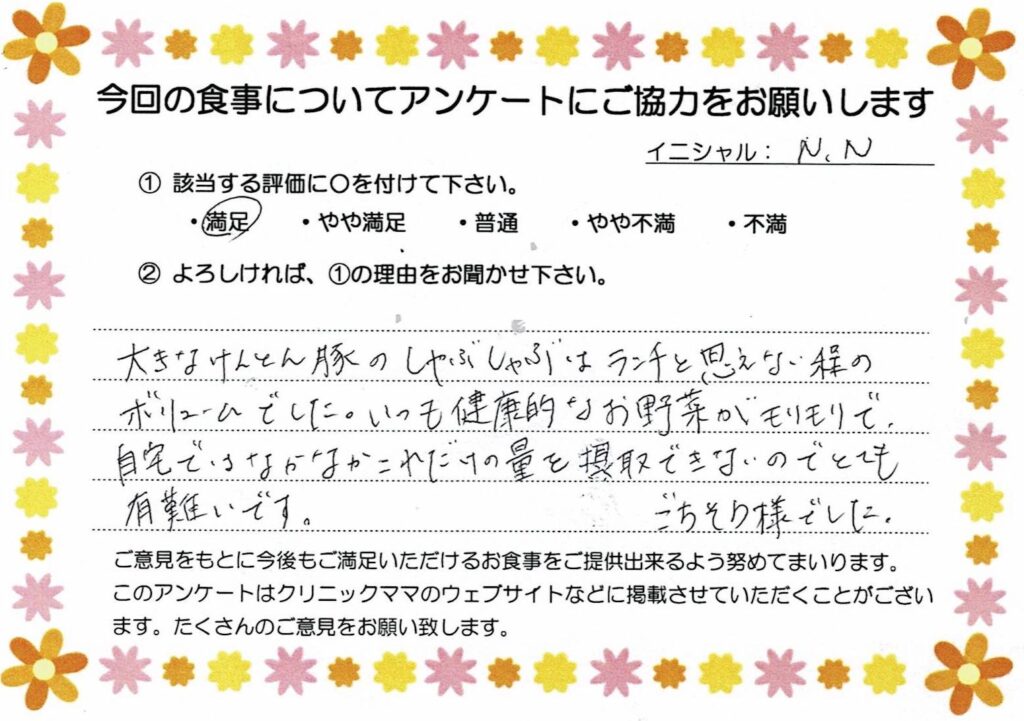 今回の食事についてアンケートにご協力をお願いします
イニシャル： N. N
① 該当する評価に○を付けて下さい。
・満足 ・やや満足 ・普通 ・やや不満 ・不満
② よろしければ、①の理由をお聞かせ下さい。
大きなけんとん豚のしゃぶしゃぶはランチと思えない程の
ボリュームでした。いつも健康的なお野菜がモリモリで、
自宅ではなかなかこれだけの量を摂取できないのでとても
有難いです。 ごちそう様でした。
ご意見をもとに今後もご満足いただけるお食事をご提供出来るよう努めてまいります。
このアンケートはクリニックママのウェブサイトなどに掲載させていただくことがござい
ます。たくさんのご意見をお願い致します。